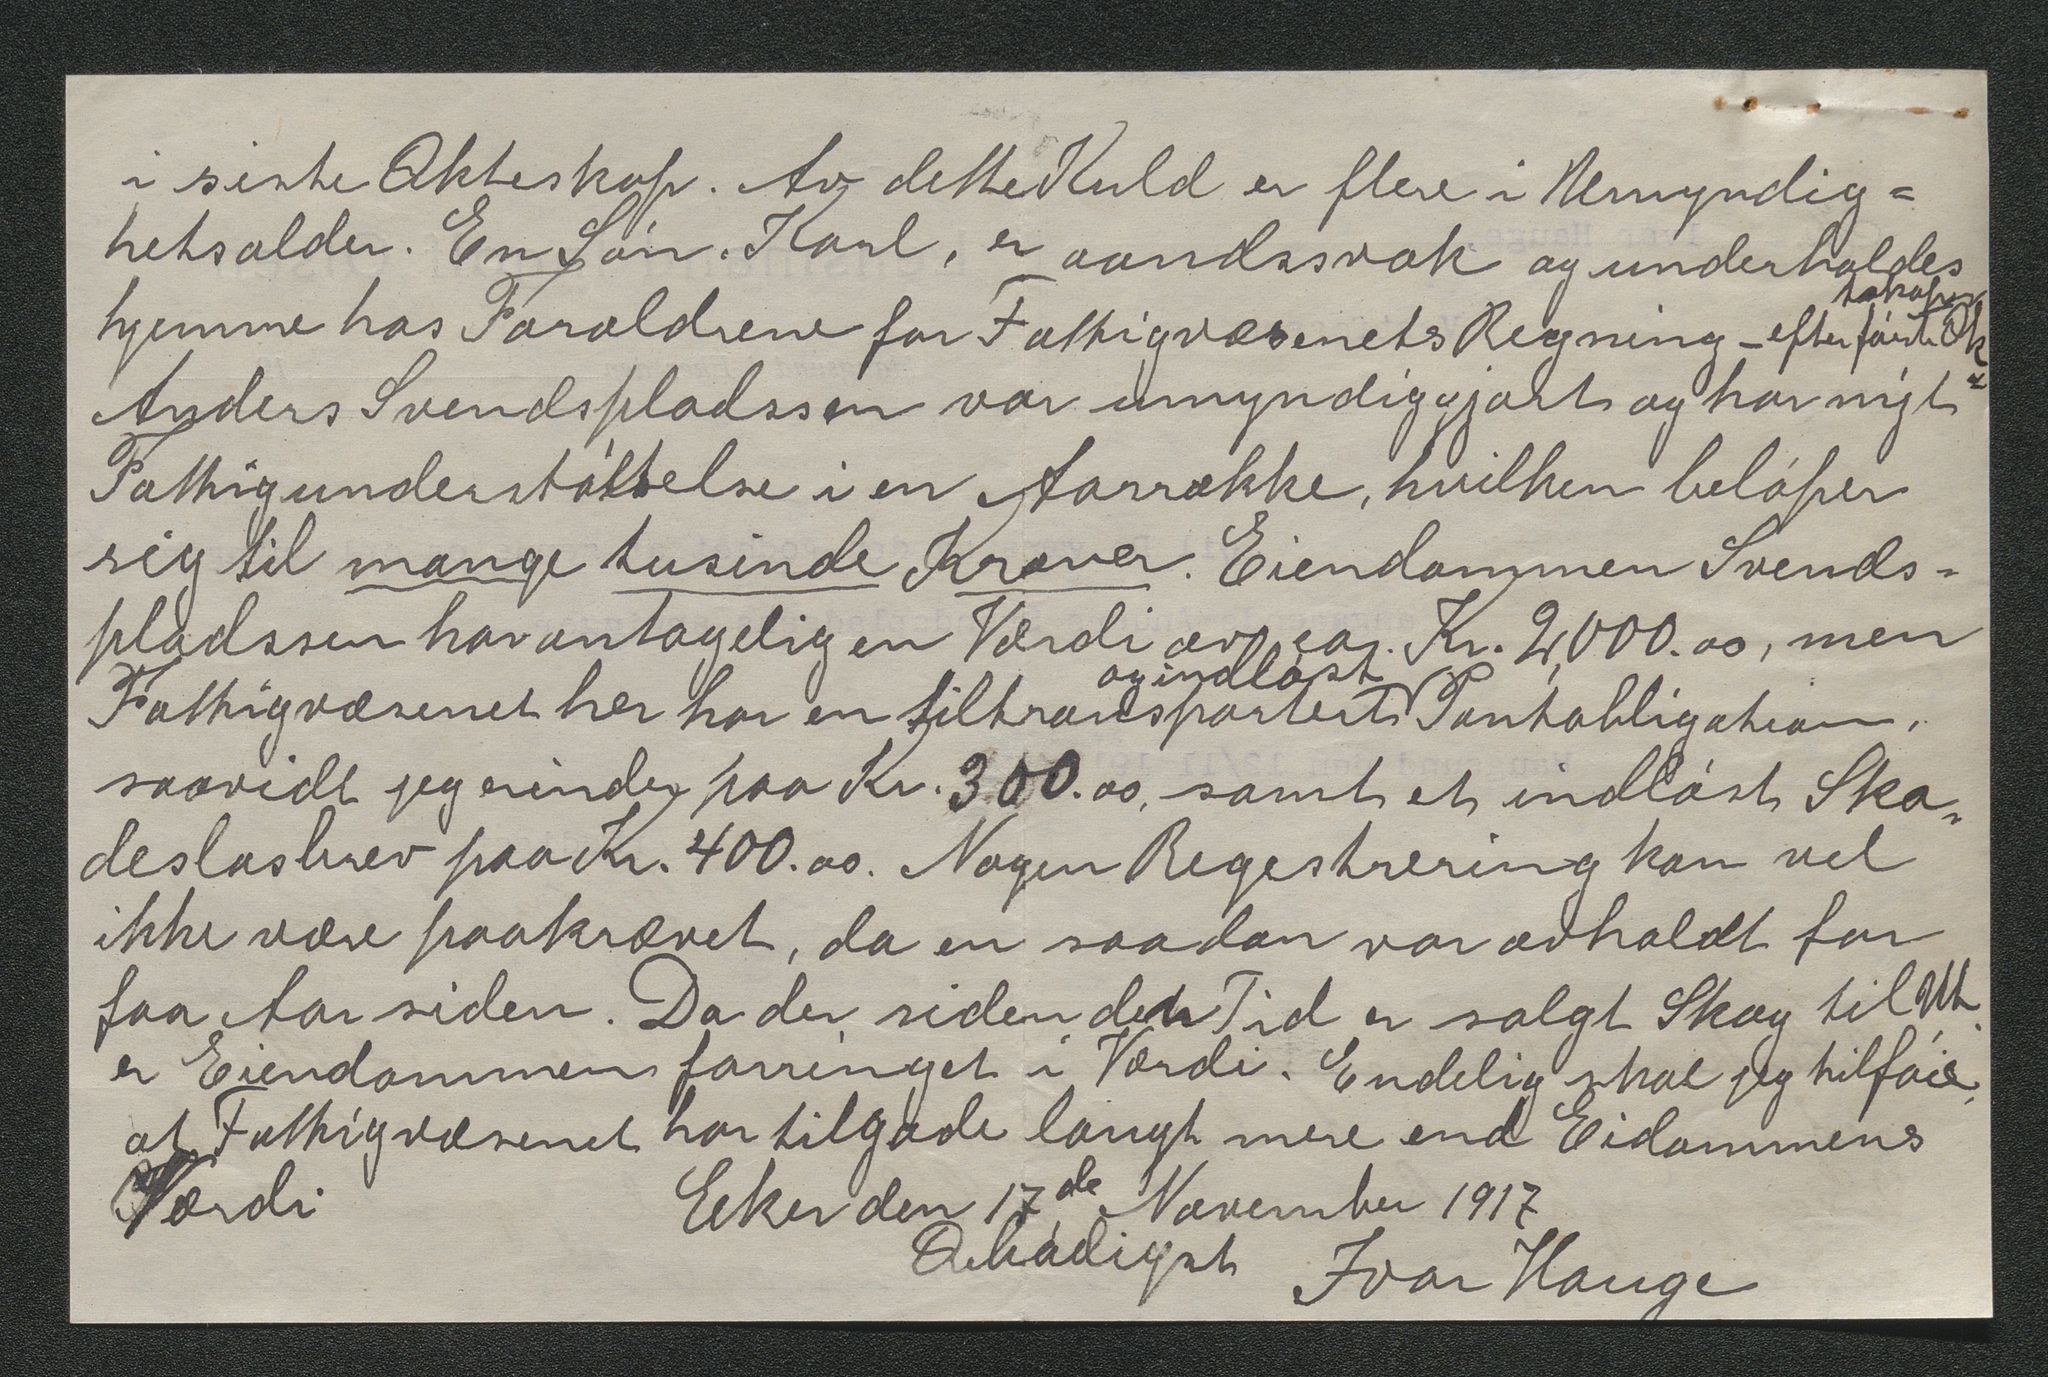 i siste Ækteskap. Av dette Kuld er flere i Uemyndig=
hetsalder. En Sön, Karl, er aandssvak og underholdes
hjemme hos Forældrene for Fattigvæsenets Regning – efter förste Æk
teskaper
Anders Svendspladssen var umyndiggjort og har nýt
Fattigunderstöttelse i en Aarrække, hvilken belöper
sig til mange tusinde Kroner. Eiendommen Svends-
pladssen har antagelig en Værdi av ca. Kr. 2,000.00, men
og indlöst
Fattigvæsenet her har en tiltransportert Pantobligation,
saavidt jeg erindrer paa Kr. 300.00, samt et indlöst Ska-
deslosbrev paa Kr. 400.00. Nogen Regestrering kan vel
ikke være paakrævet, da en saadan var avholdt for
faa Aar siden. Da der siden den Tid er solgt Skog til
er Eiendommen forringet i Værdi. Endelig skal jeg tilföie,
at Fattigvæsenet har tilgode langt mere end Eidommens
Værdi
Eeker den 17de November 1917
Ærbödigst Ivar Hauge